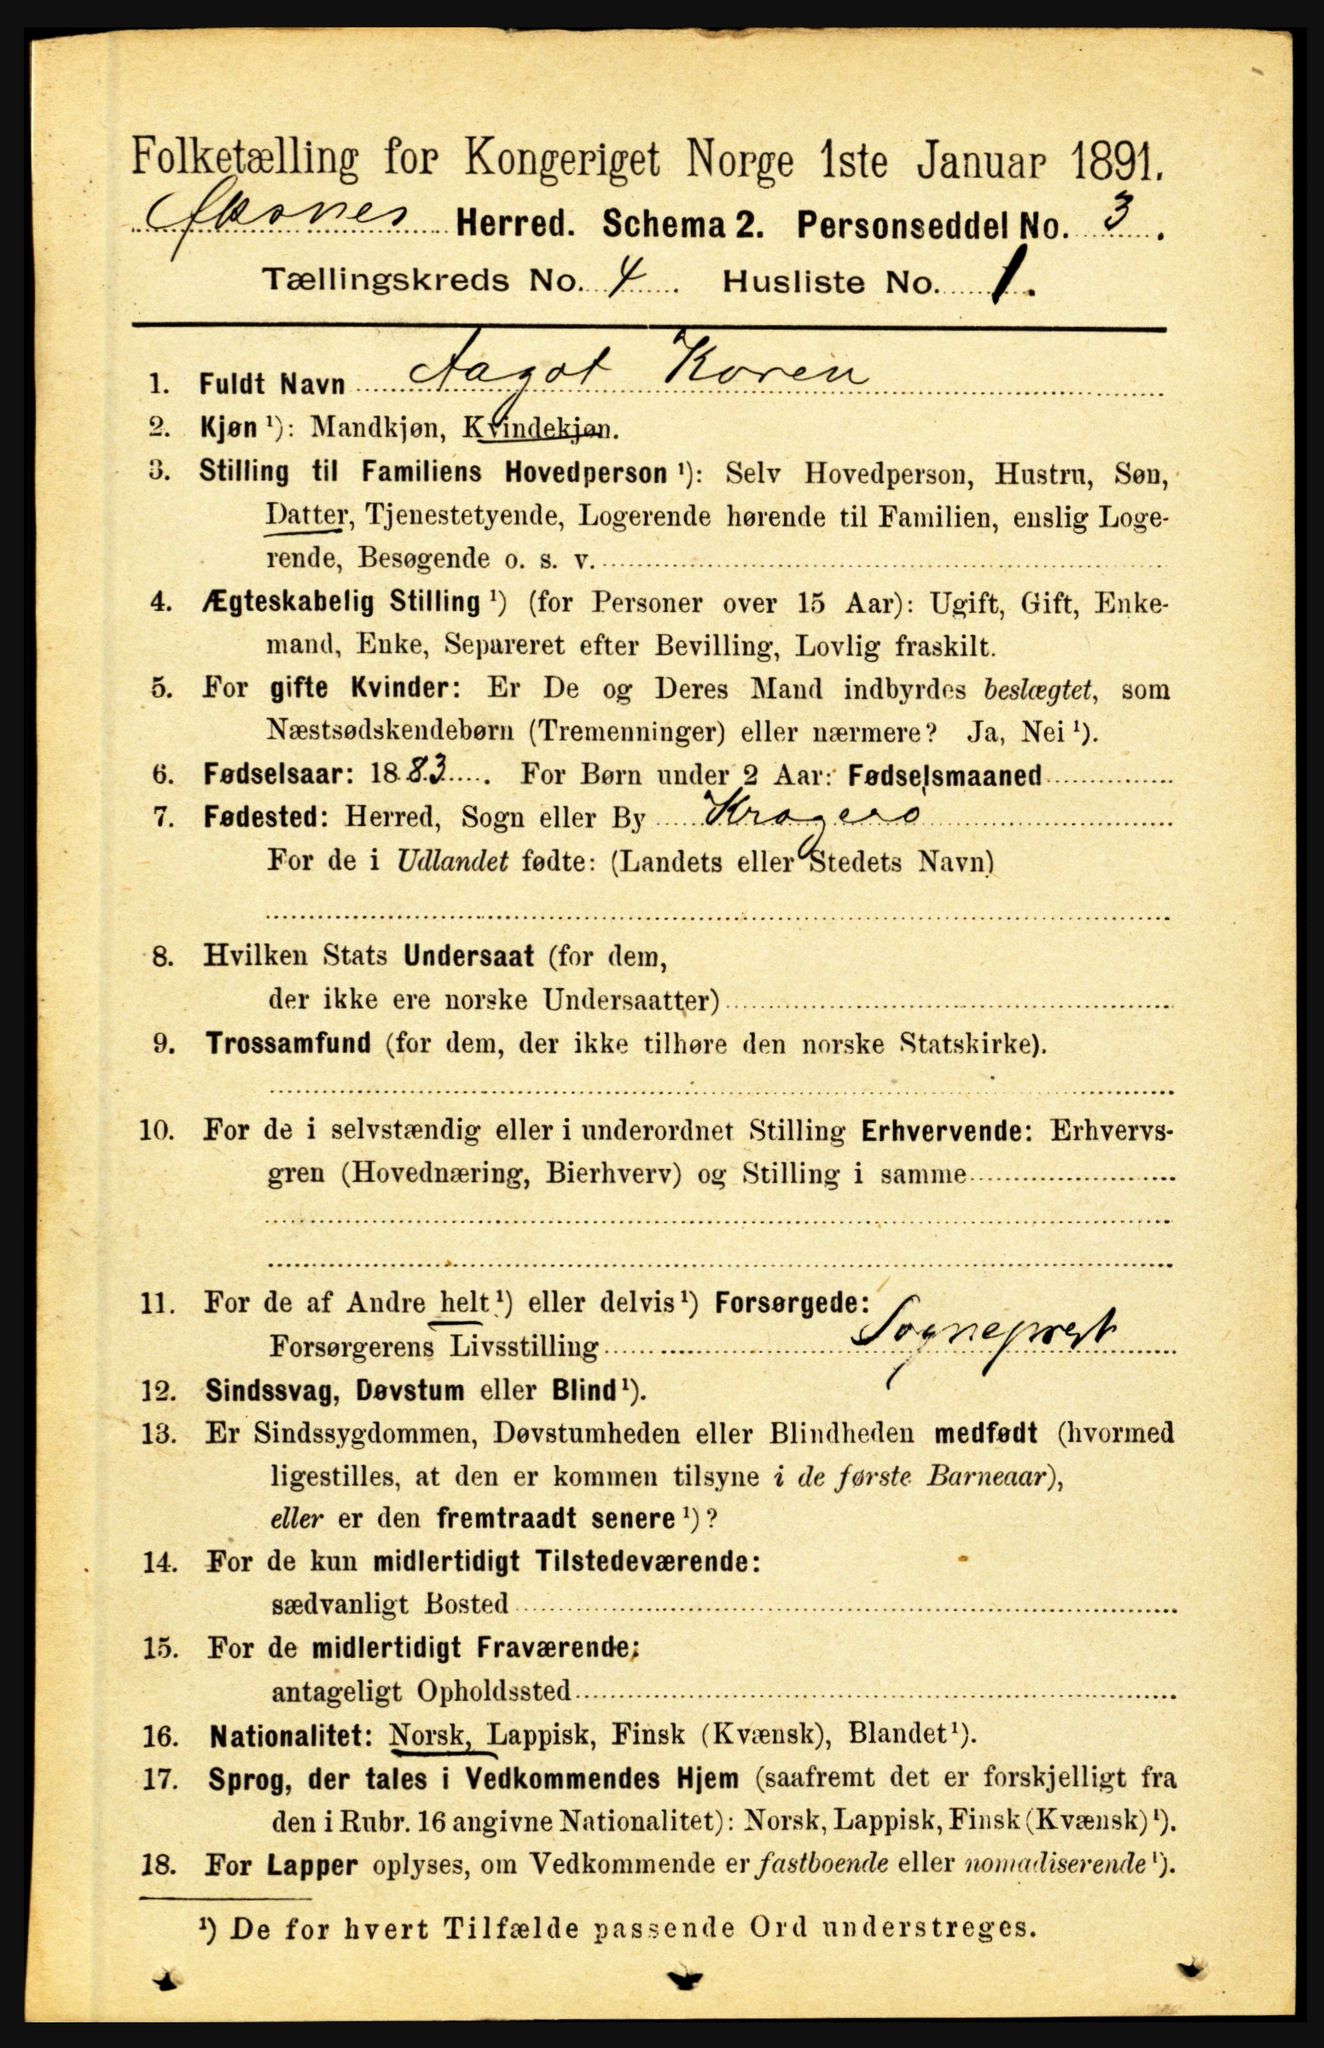 Folketælling for Kongeriget Norge 1ste Januar 1891.
Øksnes Herred. Schema 2. Personseddel No. 3.
Tællingskreds No. 4. Husliste No. 1.
1. Fuldt Navn Aagot Koren
2. Kjøn ¹): Mandkjøn, Kvindekjøn.
3. Stilling til Familiens Hovedperson ¹): Selv Hovedperson, Hustru, Søn,
Datter, Tjenestetyende, Logerende hørende til Familien, enslig Loge-
rende, Besøgende o. s. v.
4. Ægteskabelig Stilling ¹) (for Personer over 15 Aar): Ugift, Gift, Enke-
mand, Enke, Separeret efter Bevilling, Lovlig fraskilt.
5. For gifte Kvinder: Er De og Deres Mand indbyrdes beslægtet, som
Næstsødskendebørn (Tremenninger) eller nærmere? Ja, Nei ¹).
6. Fødselsaar: 1883. For Børn under 2 Aar: Fødselsmaaned
7. Fødested: Herred, Sogn eller By Kragerø
For de i Udlandet fødte: (Landets eller Stedets Navn)
8. Hvilken Stats Undersaat (for dem,
der ikke ere norske Undersaatter)
9. Trossamfund (for dem, der ikke tilhøre den norske Statskirke).
10. For de i selvstændig eller i underordnet Stilling Erhvervende: Erhvervs-
gren (Hovednæring, Bierhverv) og Stilling i samme
11. For de af Andre helt ¹) eller delvis ¹) Forsørgede:
Forsørgerens Livsstilling Sogneprest
12. Sindssvag, Døvstum eller Blind ¹).
13. Er Sindssygdommen, Døvstumheden eller Blindheden medfødt (hvormed
ligestilles, at den er kommen tilsyne i de første Barneaar),
eller er den fremtraadt senere ¹)?
14. For de kun midlertidigt Tilstedeværende:
sædvanligt Bosted
15. For de midlertidigt Fraværende:
antageligt Opholdssted
16. Nationalitet: Norsk, Lappisk, Finsk (Kvænsk), Blandet ¹).
17. Sprog, der tales i Vedkommendes Hjem (saafremt det er forskjelligt fra
den i Rubr. 16 angivne Nationalitet): Norsk, Lappisk, Finsk (Kvænsk) ¹).
18. For Lapper oplyses, om Vedkommende er fastboende eller nomadiserende ¹).
¹) De for hvert Tilfælde passende Ord understreges.